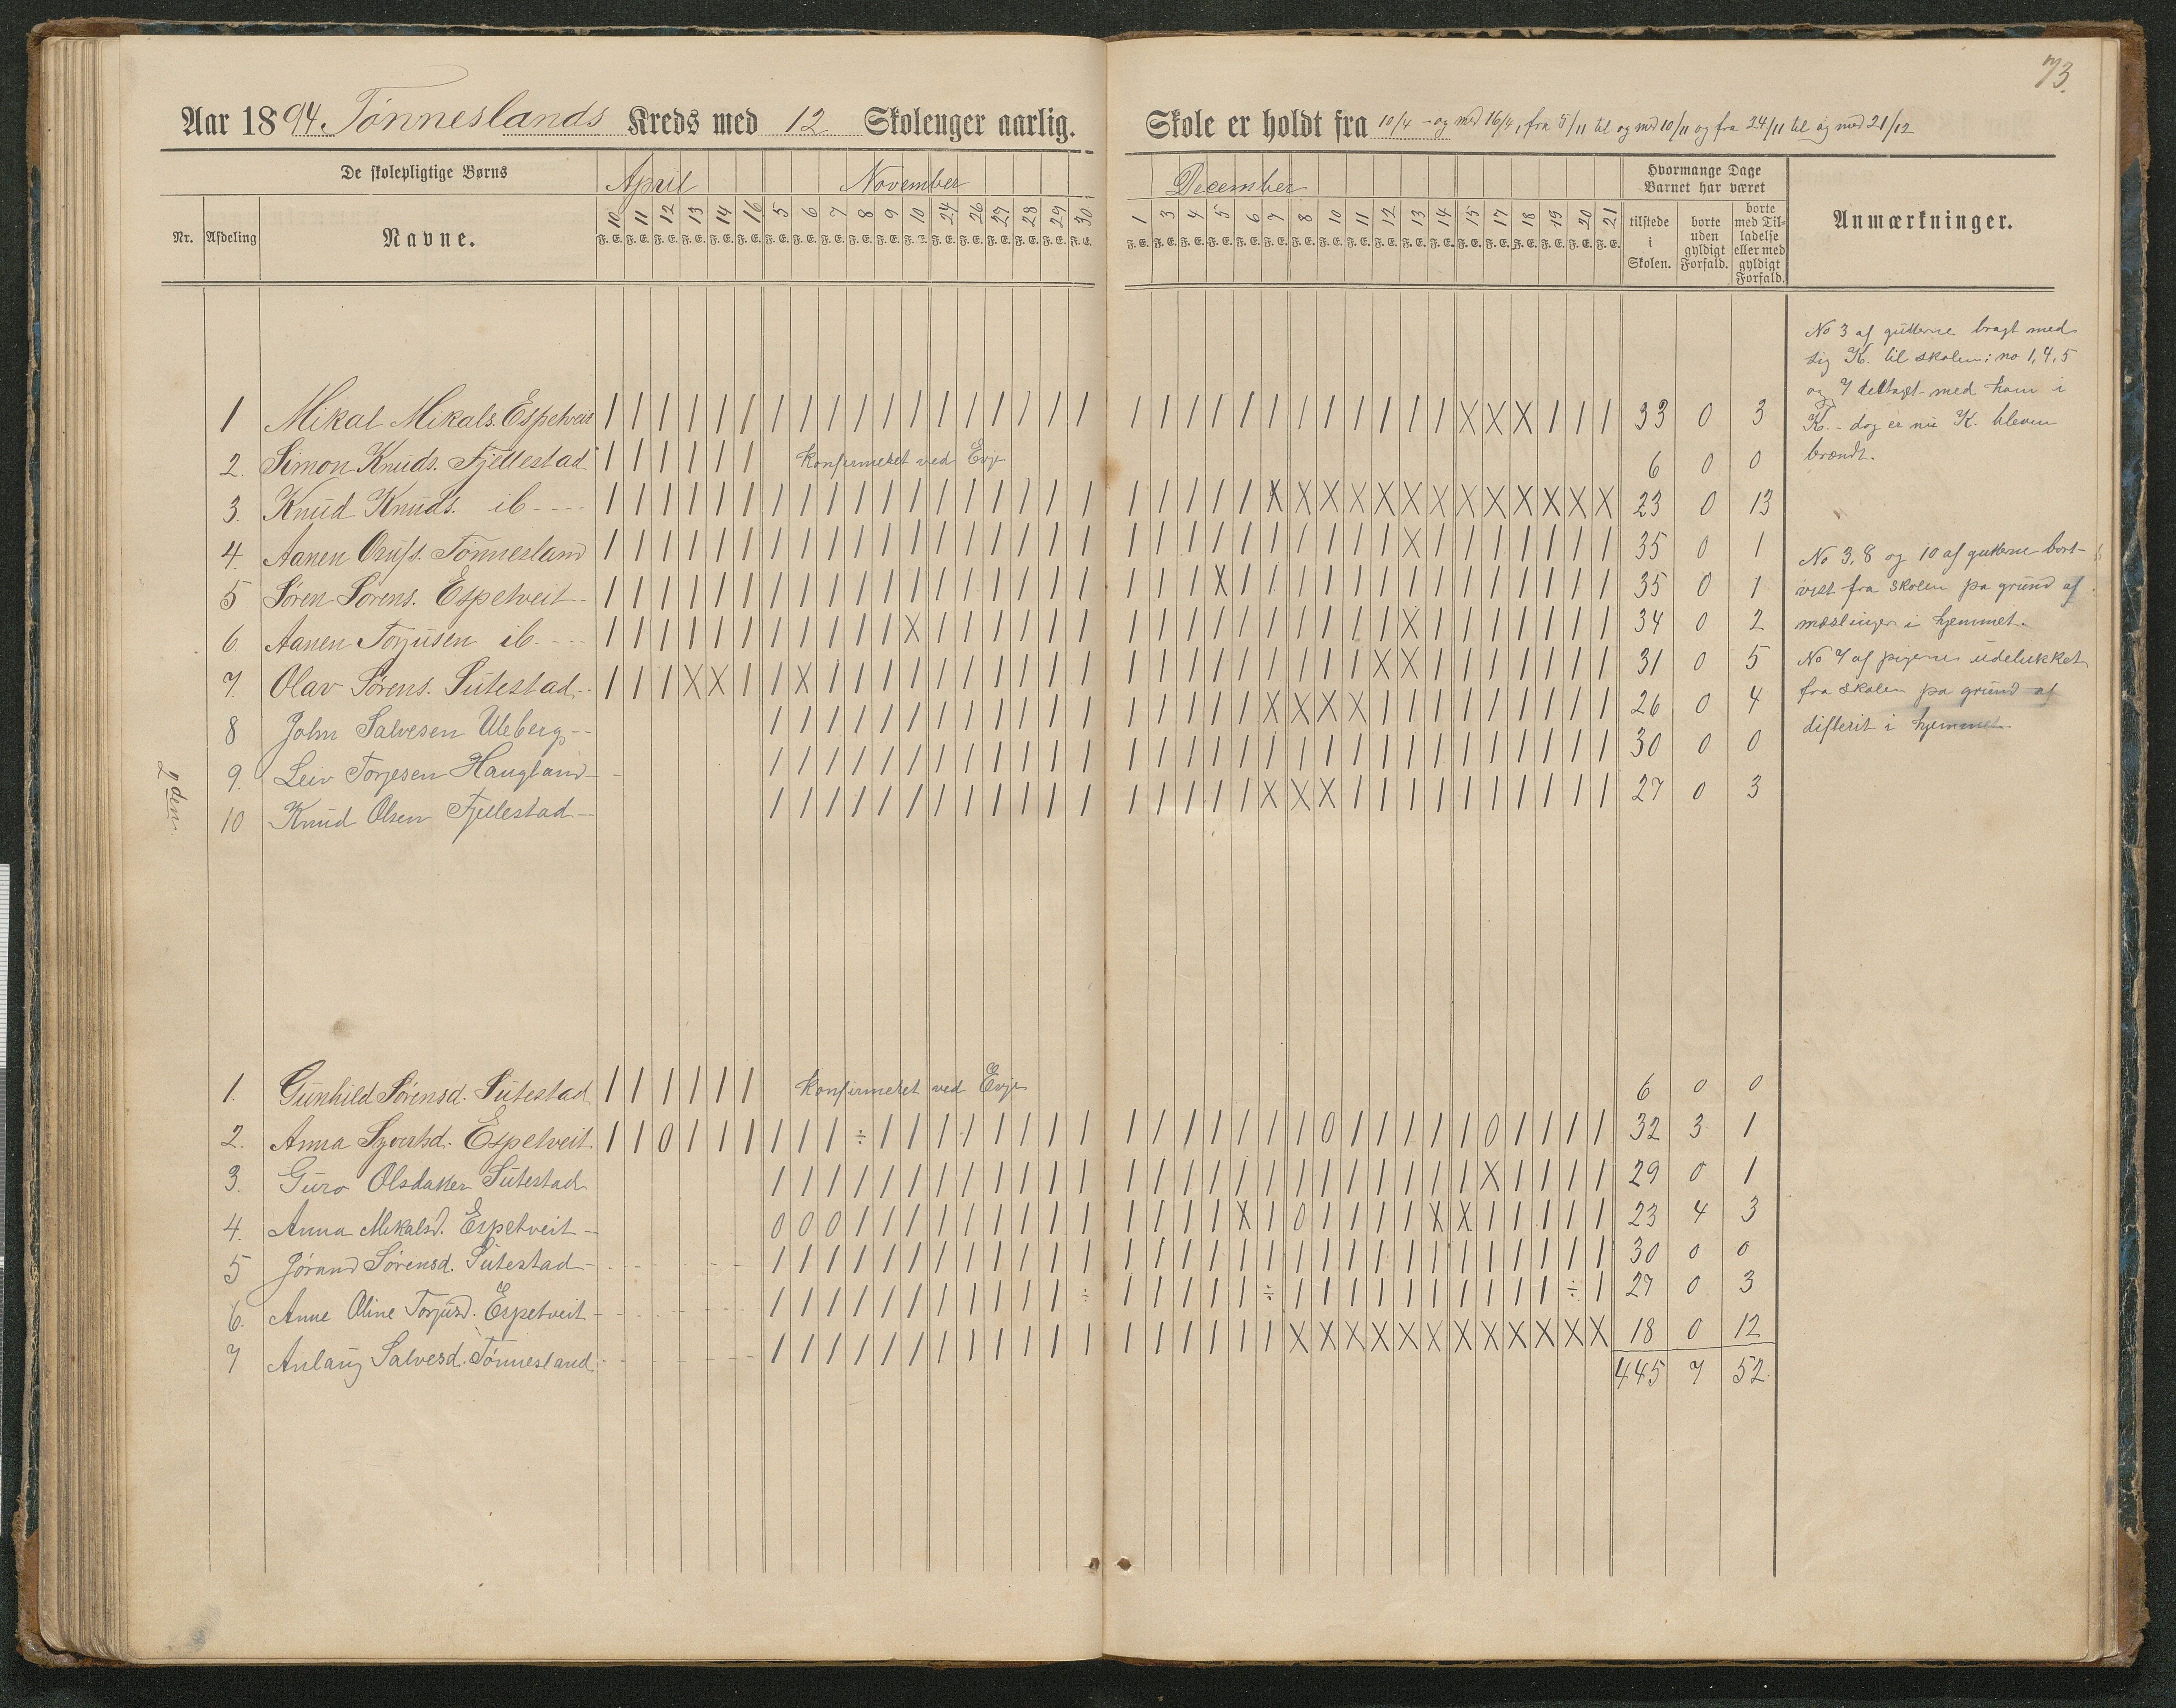 73.
Aar 1894. Tønneslands Kreds med 12 Skoleuger aarlig.
Skole er holdt fra 10/4 - og med 16/4, fra 5/11 til og med 10/11 og fra 24/11 til og med 21/12
De skolepligtige Børns
April November
December
Hvormange Dage Barnet har været
Nr. Afdeling Navne.
10 11 12 13 14 16 5 6 7 8 9 10 24 26 27 28 29 30
1 3 4 5 6 7 8 10 11 12 13 14 15 17 18 19 20 21
F. E. F. E. F. E. F. E. F. E. F. E. F. E. F. E. F. E. F. E. F. E. F. E. F. E. F. E. F. E. F. E. F. E. F. E.
F. E. F. E. F. E. F. E. F. E. F. E. F. E. F. E. F. E. F. E. F. E. F. E. F. E. F. E. F. E. F. E. F. E. F. E.
tilstede i Skolen.
borte uden gyldigt Forfald.
borte med Tilladelse eller med gyldigt Forfald.
Anmærkninger.
1 Mikal Mikals. Espetveit | | | | | | | | | | | | | | | | | | | | | | | | | | | | | | X X X | | | 33 0 3
2. Simon Knuds. Fjellestad | | | | | | Konfirmeret ved Evje 6 0 0
3. Knud Knuds. ib | | | | | | | | | | | | | | | | | | | | | | | X X X X X X X X X X X X X 23 0 13
4. Aanen Tønnesland | | | | | | | | | | | | | | | | | | | | | | | | | | | | X | | | | | | | 35 0 1
5 Søren Sørens. Espetveit | | | | | | | | | | | | | | | | | | | | | X | | | | | | | | | | | | | | 35 0 1
6 Aanen Torjusen ib. | | | | | | | | | | | X | | | | | | | | | | | | | | | | X | | | | | | | 34 0 2
7. Olav Sørens. Sutestad | | | X X | | X | | | | | | | | | | | | | | | | | | | X X | | | | | | | 31 0 5
8 John Salvesen Uleberg | | | | | | | | | | | | | | | | | X X X X | | | | | | | | | 26 0 4
9. Leiv Torjesen Haugland | | | | | | | | | | | | | | | | | | | | | | | | | | | | | | 30 0 0
10 Knud Olsen Fjellestad | | | | | | | | | | | | | | | | | X X X | | | | | | | | | | 27 0 3
2den
1. Gunhild Sørensd. Sutestad | | | | | | Konfirmeret ved Evje 6 0 0
2. Anna Syvertsd. Espetveit | | 0 | | | | | | ÷ | | | | | | | | | | | | | | | 0 | | | | | 0 | | | | 32 3 1
3. Guro Olsdatter Sutestad | | | | | | | | | | | | | | | | | | | | | | | | | X | | | | 29 0 1
4. Anna Mikalsd. Espetveit 0 0 0 | | | | | | | | | | | | | X | 0 | | | | X X | | | | | 23 4 3
5 Jørand Sørensd. Sutestad | | | | | | | | | | | | | | | | | | | | | | | | | | | | | | 30 0 0
6. Anne Oline Torjusd. Espetveit | | | | | | | | | | | ÷ | | | | | ÷ | | | | | | | | | | ÷ | 27 0 3
7 Anlaug Salvesd. Tønnesland | | | | | | | | | | | | | | | | | | X X X X X X X X X X X X 18 0 12
445 7 52
No 3 af gutterne bragt med
sig K. til skolen; no 1, 4, 5
og 7 deltaget med ham i
K. - dog er nu K. bleven
brændt.
No 3, 8 og 10 af gutterne bort-
vist fra skolen pa grund af
mæslinger i hjemmet.
No 7 af pigerne udelukket
fra skolen pa grund af
difterit i hjemmet.